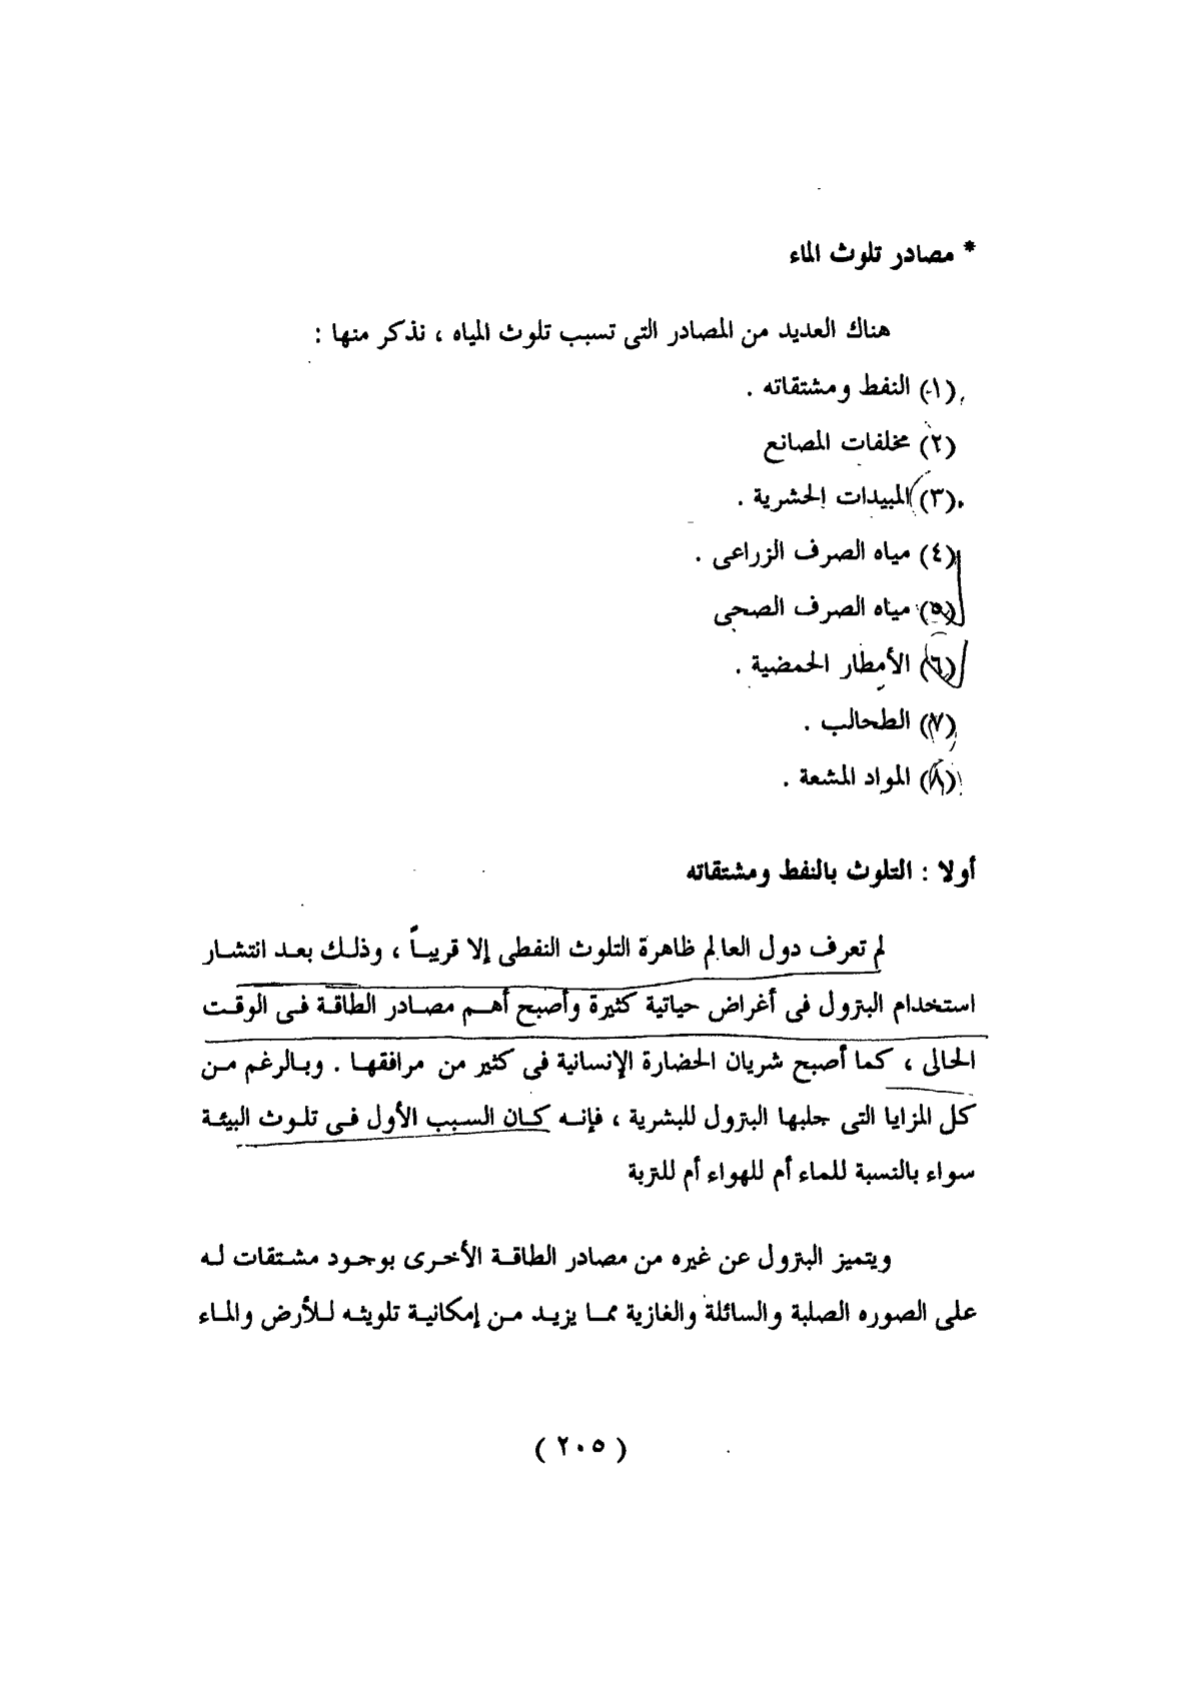 * مصادر تلوث الماء
هناك العديد من المصادر التى تسبب تلوث المياه ، نذكر منها :
(١) النفط ومشتقاته .
(٢) مخلفات المصانع
(٣) المبيدات الحشرية .
(٤) مياه الصرف الزراعى .
(٥) مياه الصرف الصحى
(٦) الأمطار الحمضية .
(٧) الطحالب .
(٨) المواد المشعة .
أولا : التلوث بالنفط ومشتقاته
لم تعرف دول العالم ظاهرة التلوث النفطى إلا قريبـاً ، وذلـك بعـد انتشـار
استخدام البترول فى أغراض حياتية كثيرة وأصبح أهـم مصـادر الطاقـة فـى الوقـت
الحالى ، كما أصبح شريان الحضارة الإنسانية فى كثير من مرافقهـا . وبـالرغم مـن
كل المزايا التى جلبها البترول للبشرية ، فإنـه كـان السـبب الأول فـى تلـوث البيئـة
سواء بالنسبة للماء أم للهواء أم للتربة
ويتميز البترول عن غيره من مصادر الطاقـة الأخـرى بوجـود مشـتقات لـه
على الصوره الصلبة والسائلة والغازية ممـا يزيـد مـن إمكانيـة تلويثـه لـلأرض والمـاء
( ٢٠٥ )